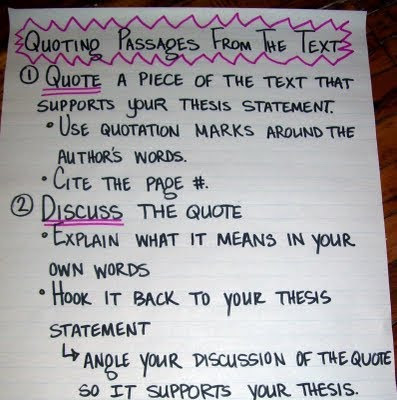 QUOTING PASSAGES FROM THE TEXT
① QUOTE A PIECE OF THE TEXT THAT
SUPPORTS YOUR THESIS STATEMENT.
• USE QUOTATION MARKS AROUND THE
AUTHOR'S WORDS.
• CITE THE PAGE #.
② DISCUSS THE QUOTE
• EXPLAIN WHAT IT MEANS IN YOUR
OWN WORDS
• HOOK IT BACK TO YOUR THESIS
STATEMENT
↳ ANGLE YOUR DISCUSSION OF THE QUOTE
SO IT SUPPORTS YOUR THESIS.